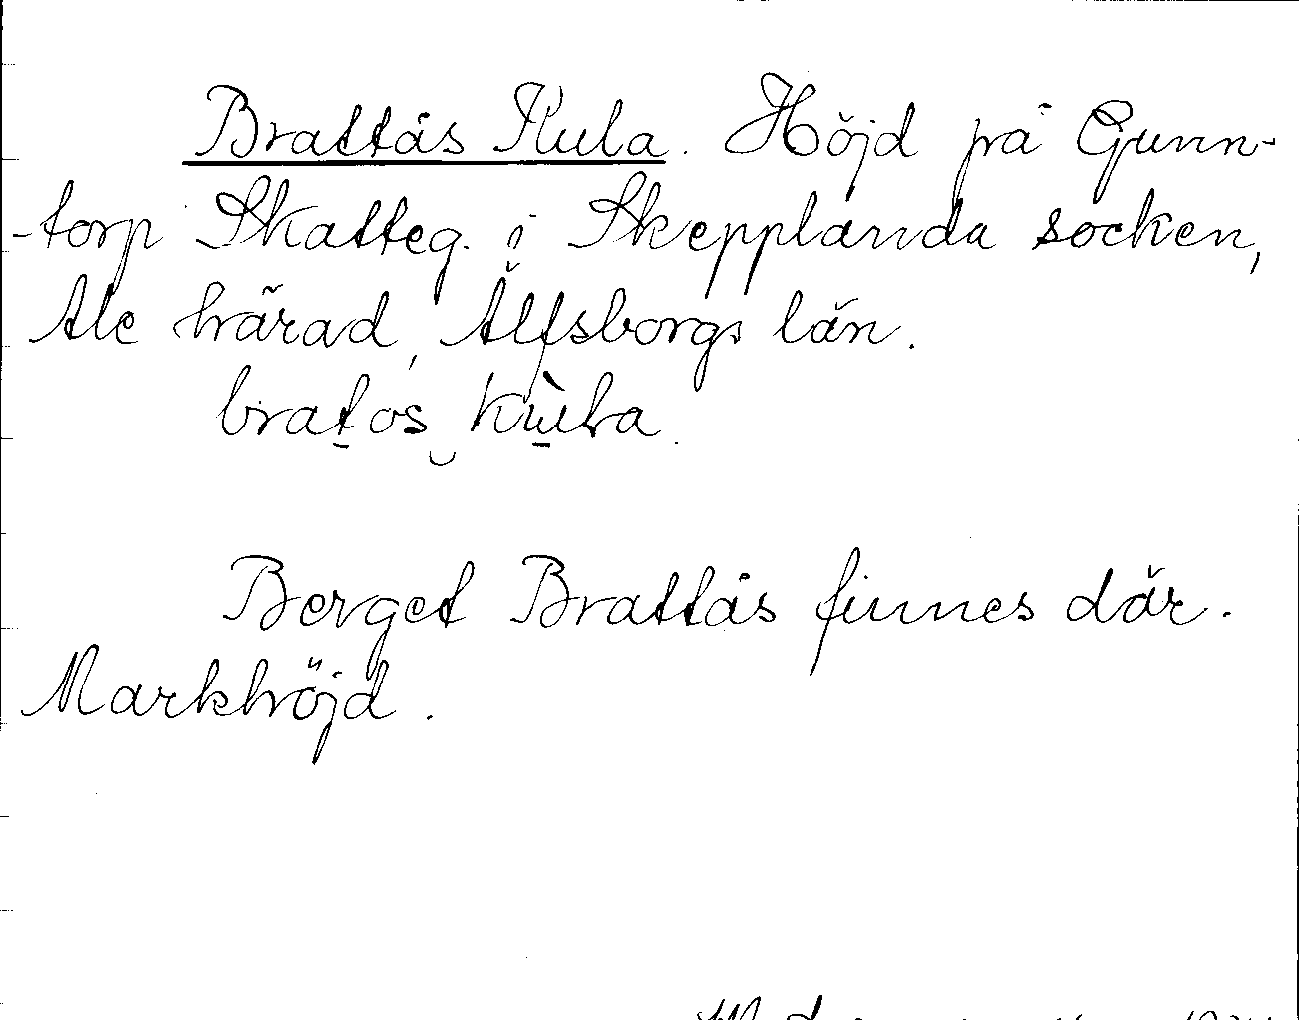 Brattås Kula. Höjd på Gunn-
-torp Skatteg. i Skepplanda socken,
Ale härad, Älfsborgs län.
bratos kùla.
Berget Brattås finnes där.
Markhöjd.